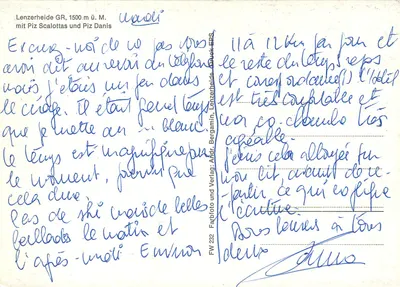 Lenzerheide GR, 1500 m ü. M.
mit Piz Scalottas und Piz Danis
Mardi
Excusez-moi de ne pas vous
avoir dit au revoir au téléphone
mais j'étais un peu dans
le cirage. Il était temps
que je mette au blanc.
le temps est magnifique pour
le moment, pourvu que
cela dure.
Pas de ski mais de belles
ballades le matin et
l'après-midi Environ
FW 232 Farbfoto und Verlag: Andr. Bergamin, Lenzerheide
11 à 12 Km par jour et
le reste du temps repos
et L'hôtel
est très confortable et
ma chambre très
agréable.
J'écris cela allongée sur
mon lit, avant de re-
partir ce qui explique
l'écriture.
Bons baisers à tous
deux